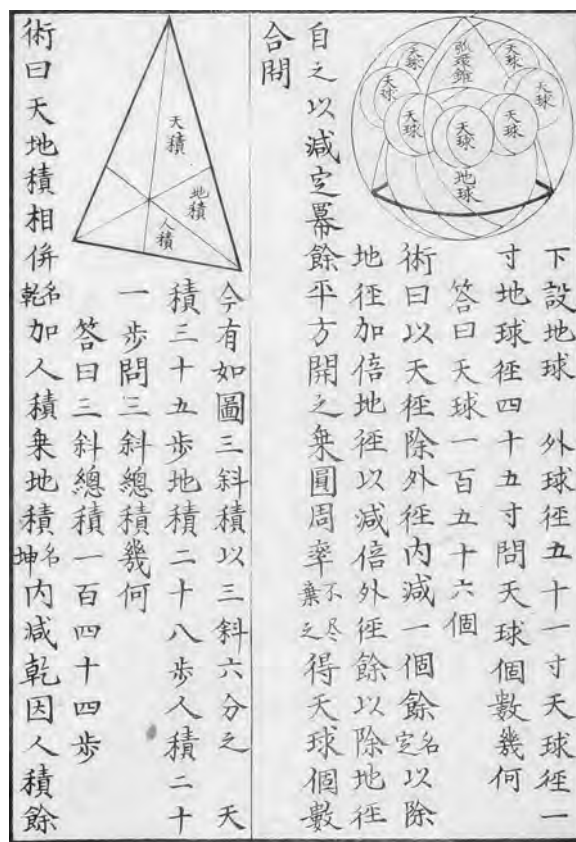 天球
弧環錐
天球
天球
天球
天球
天球
天球
天球
地球
下設地球 外球径五十一寸天球径一
寸地球径四十五寸問天球個數幾何
答曰天球一百五十六個
術曰以天径除外径内減一個餘名定以除
地径加倍地径以減倍外径餘以除地径
自之以減定冪餘平方開之乗圓周率不尽棄之得天球個數
合問
天積
地積
人積
今有如圖三斜積以三斜六分之 天
積三十五歩地積二十八歩人積二十
一歩問三斜總積幾何
答曰三斜總積一百四十四歩
術曰天地積相併名乾加人積乗地積名坤内減乾因人積餘